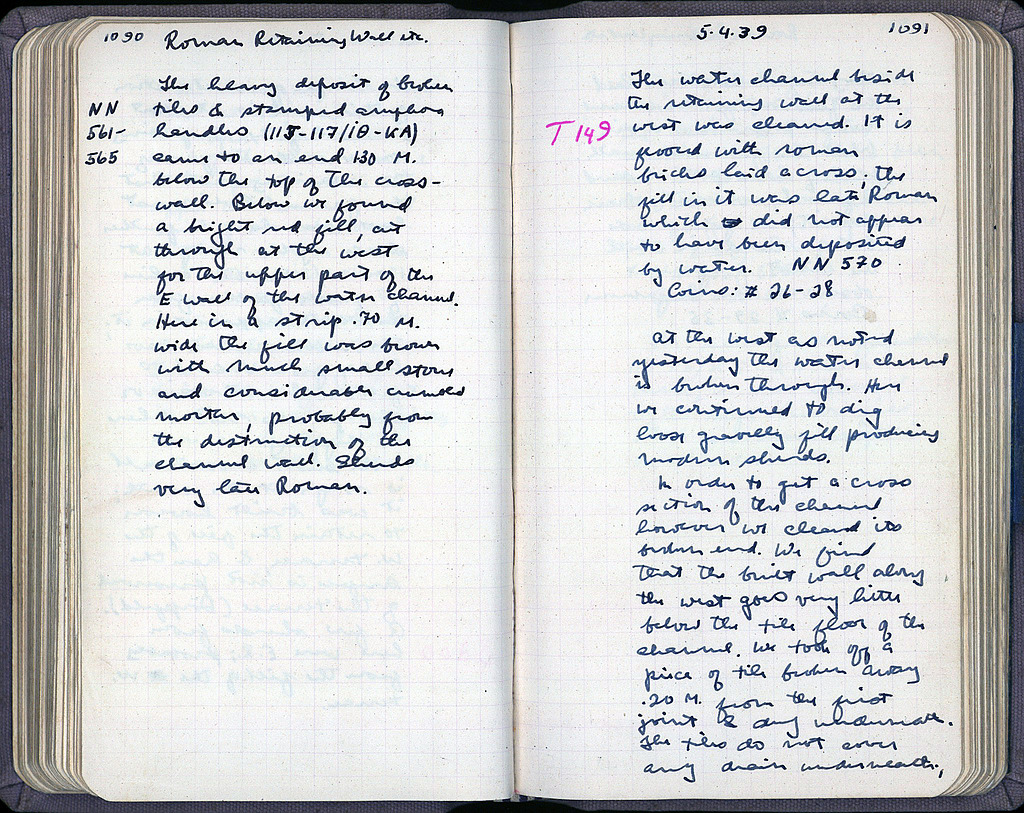 1090 Roman Retaining Wall etc.
The heavy deposit of broken
NN tiles & stamped amphora
561- handles (115-117/ΙΘ-ΚΑ)
565 came to an end 1.30 M.
below the top of the cross-
wall. Below we found
a bright red fill, cut
through at the west
for the upper part of the
E wall of the water channel.
Here in a strip .70 M.
wide the fill was brown
with much small stone
and considerable crumbled
mortar, probably from
the destruction of the
channel wall. Sherds
very late Roman.
5·4·39 1091
The water channel beside
the retaining wall at the
T 149 west was cleaned. It is
floored with roman
bricks laid across; the
fill in it was late Roman
which did not appear
to have been deposited
by water. NN 570
Coins: # 26-28
At the west as noted
yesterday the water channel
is broken through. Here
we continued to dig
loose gravelly fill producing
modern sherds.
In order to get a cross
section of the channel
however we cleaned its
broken end. We find
that the built wall along
the west goes very little
below the tile floor of the
channel. We took off a
piece of tile broken away
.20 M. from the first
joint & dug underneath.
The tiles do not cover
any drain underneath,